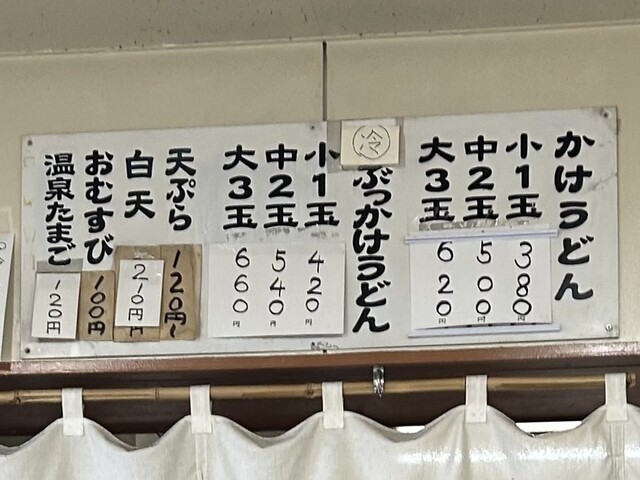 かけうどん
小1玉 380円
中2玉 500円
大3玉 620円
冷
ぶっかけうどん
小1玉 420円
中2玉 540円
大3玉 660円
天ぷら 120円〜
白天 210円
おむすび 100円
温泉たまご 120円